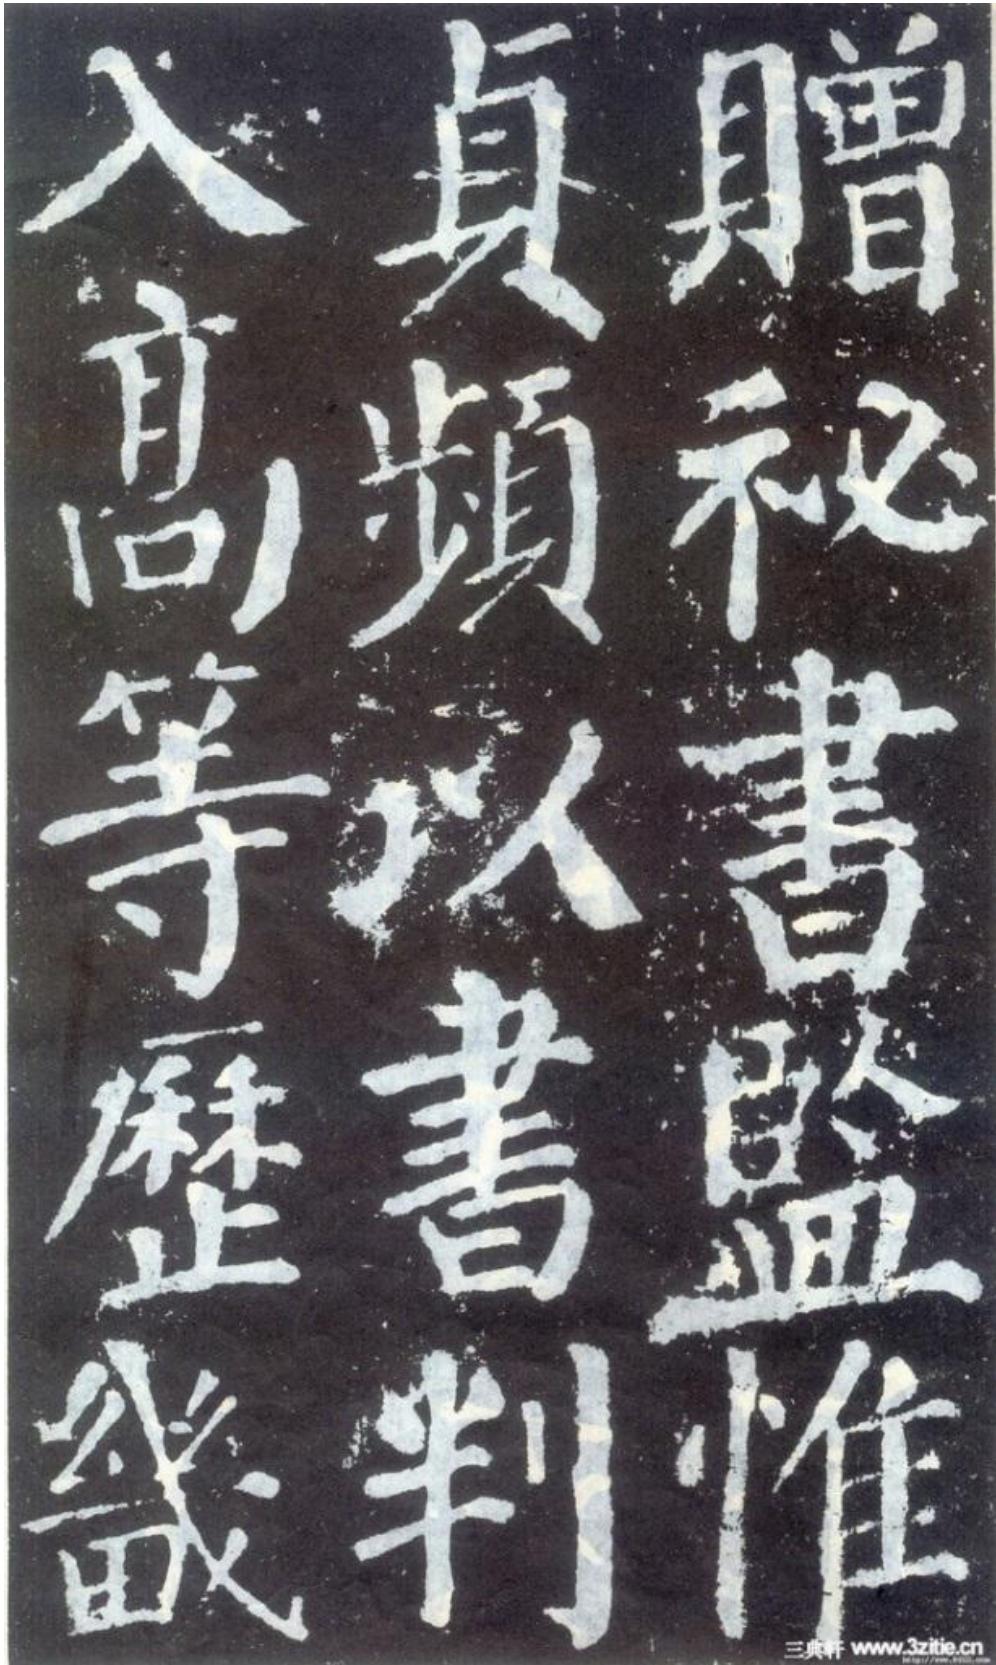 贈秘書監惟
貞頻以書判
入高等歷畿
三典轩 www.3zitie.cn